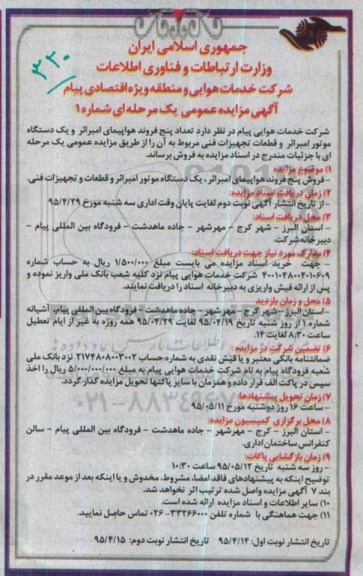 ۳۳۰
جمهوری اسلامی ایران
وزارت ارتباطات و فناوری اطلاعات
شرکت خدمات هوایی و منطقه ویژه اقتصادی پیام
آگهی مزایده عمومی یک مرحله ای شماره ۱
شرکت خدمات هوایی پیام در نظر دارد تعداد پنج فروند هواپیمای امبرائر و یک دستگاه
موتور امبرائر و قطعات تجهیزات فنی مربوط به آن را از طریق مزایده عمومی یک مرحله
ای با جزئیات مندرج در اسناد مزایده به فروش برساند.
۱) موضوع مزایده
- فروش پنج فروند هواپیمای امبرائر، یک دستگاه موتور امبرائر و قطعات و تجهیزات فنی.
۲) زمان دریافت اسناد مزایده:
- از تاریخ انتشار آگهی نوبت دوم لغایت پایان وقت اداری سه شنبه مورخ ۹۵/۴/۲۹
۳) محل دریافت اسناد:
- استان البرز - شهر کرج - مهرشهر - جاده ماهدشت - فرودگاه بین المللی پیام -
دبیرخانه شرکت.
۴) مدارک مورد نیاز جهت دریافت اسناد:
- جهت خرید اسناد مزایده می بایست مبلغ ۱/۵۰۰/۰۰۰ ریال به حساب شماره
۴۰۰۱۰۴۸۰۰۴۰۱۰۶۰۹ شرکت خدمات هوایی پیام نزد کلیه شعب بانک ملی واریز نموده و
پس از ارائه فیش واریزی به دبیرخانه اسناد را دریافت نمایند.
۵) محل و زمان بازدید
- استان البرز - شهر کرج - مهرشهر - جاده ماهدشت - فرودگاه بین المللی پیام، آشیانه
شماره ۱ از روز شنبه تاریخ ۹۵/۰۴/۱۹ لغایت ۹۵/۰۴/۲۹ همه روزه به غیر از ایام تعطیل
ساعت ۸:۳۰ لغایت ۱۴.
۶) تضمین شرکت در مزایده:
ضمانتنامه بانکی معتبر و یا فیش نقدی به شماره حساب ۲۱۷۴۸۰۸۰۰۳۰۰۲ نزد بانک ملی
شعبه فرودگاه پیام به نام شرکت خدمات هوایی پیام به مبلغ ۵/۰۰۰/۰۰۰/۰۰۰ ریال را اخذ
سپس در پاکت الف قرار داده و همزمان با سایر پاکتها تحویل مزایده گذار گردد.
۷) زمان تحویل پیشنهادها:
- ساعت ۱۶ روز دوشنبه مورخ ۹۵/۰۵/۱۱
۸) محل برگزاری کمیسیون مزایده:
- استان البرز - کرج - مهرشهر - جاده ماهدشت - فرودگاه بین المللی پیام - سالن
کنفرانس ساختمان اداری.
۹) زمان بازگشایی پاکات:
- روز سه شنبه تاریخ ۹۵/۰۵/۱۲ ساعت ۱۰:۳۰
توضیح اینکه به پیشنهادهای فاقد امضا، مشروط، مخدوش و یا اینکه بعد از موعد مقرر در
بند ۷ آگهی مزایده واصل شده ترتیب اثر نخواهد شد.
۱۰) سایر اطلاعات و اسناد مزایده ارائه شده است
۱۱) جهت هماهنگی با شماره تلفن ۳۳۲۶۶۰۰۰-۰۲۶ تماس حاصل نمایید.
تاریخ انتشار نوبت اول: ۹۵/۴/۱۴ تاریخ انتشار نوبت دوم: ۹۵/۴/۱۵